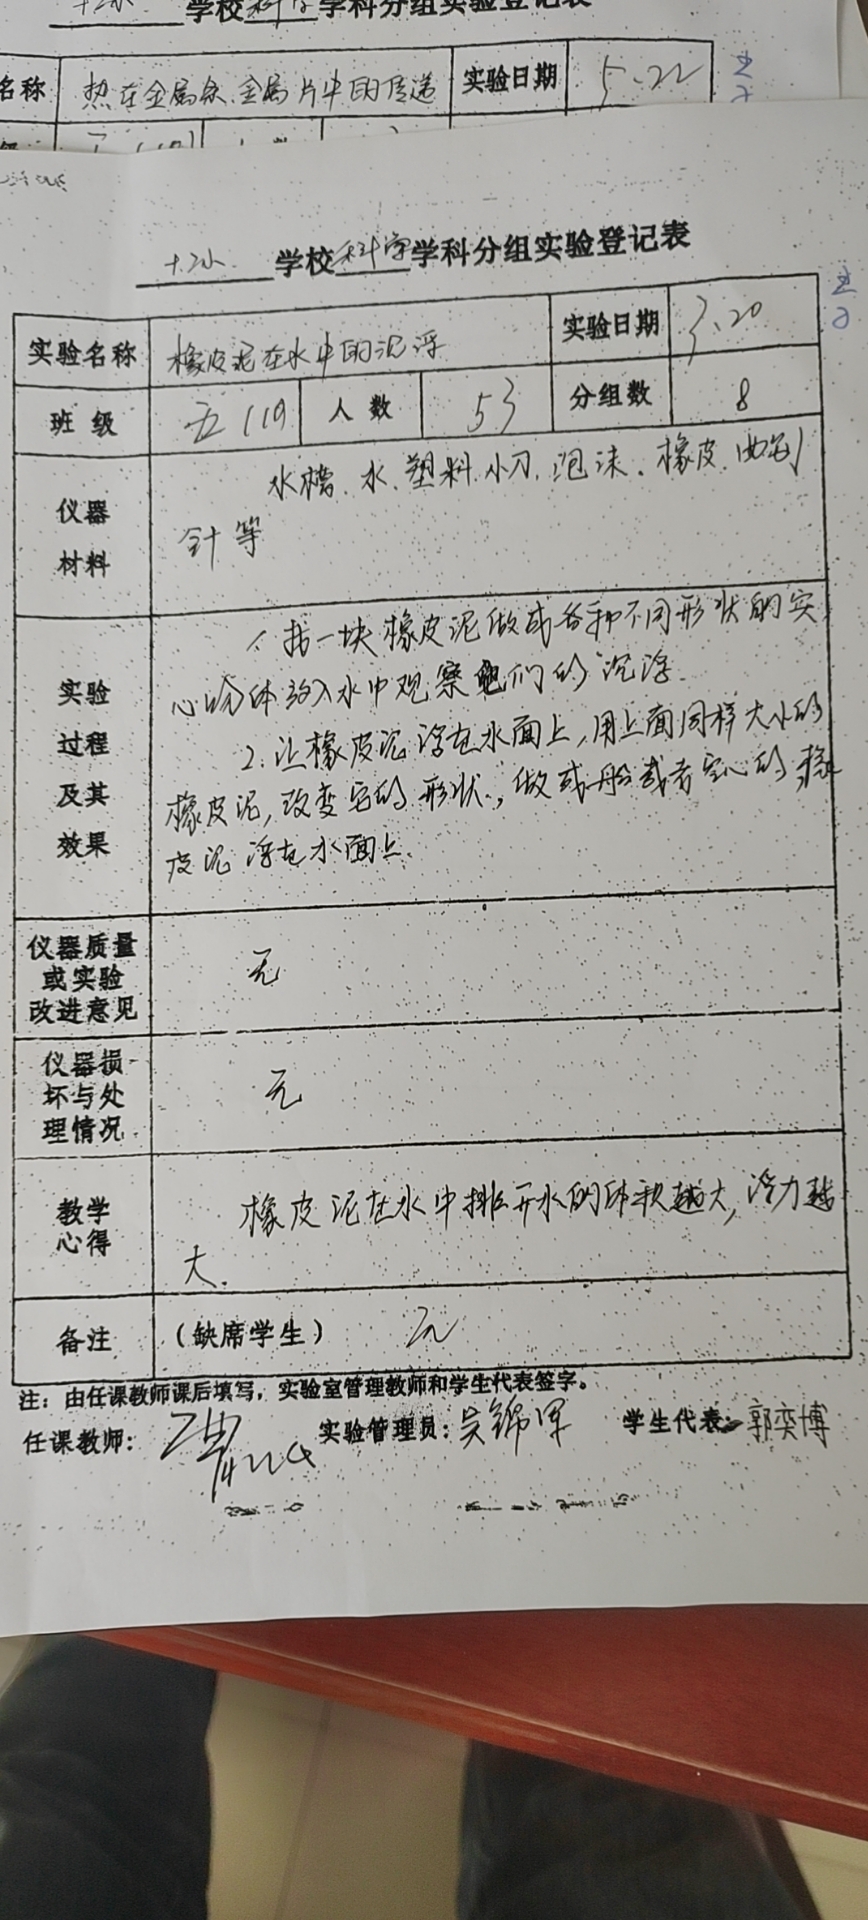 学校科学学科分组实验登记表
名称 热在金属条、金属片中的传递 实验日期 5.22
十二小 学校科学学科分组实验登记表
实验名称 橡皮泥在水中的沉浮 实验日期 3.20
班级 五(19) 人数 53 分组数 8
仪器
材料
水槽、水、塑料、小刀、泡沫、橡皮、曲别
针等
实验
过程
及其
效果
1、把一块橡皮泥做成各种不同形状的实
心物体放入水中观察它们的沉浮.
2.让橡皮泥浮在水面上,用上面同样大小的
橡皮泥,改变它的形状,做成船或者空心的,橡
皮泥浮在水面上.
仪器质量
或实验
改进意见
无
仪器损
坏与处
理情况
无
教学
心得
橡皮泥在水中排开水的体积越大,浮力越
大.
备注 (缺席学生) 无
注:由任课教师课后填写,实验室管理教师和学生代表签字。
任课教师: 实验管理员:吴锦军 学生代表:郭奕博